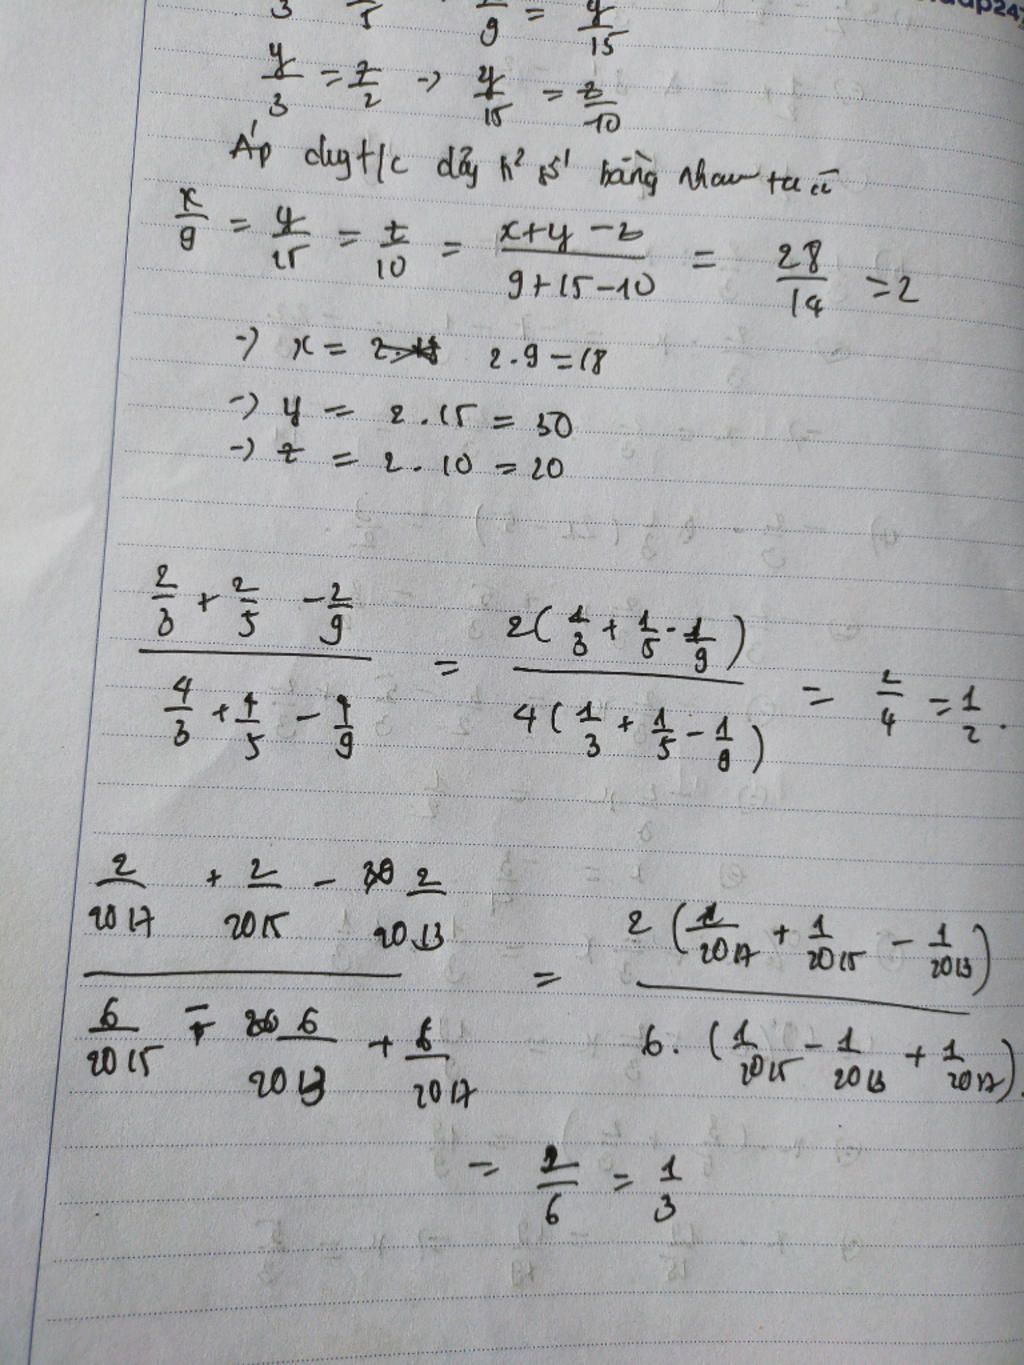 3 5 9 = y/15
y/3 = z/2 -> y/15 = z/10
Áp dụng t/c dãy tỉ số bằng nhau ta có
x/9 = y/15 = z/10 = (x+y-z)/(9+15-10) = 28/14 = 2
-> x = 2.9 = 18
-> y = 2.15 = 30
-> z = 2.10 = 20
(2/3 + 2/5 - 2/9)/(4/3 + 4/5 - 4/9) = 2(1/3 + 1/5 - 1/9)/4(1/3 + 1/5 - 1/9) = 2/4 = 1/2.
(2/2017 + 2/2015 - 2/2013)/(6/2015 - 6/2013 + 6/2017) = 2(1/2017 + 1/2015 - 1/2013)/6.(1/2015 - 1/2013 + 1/2017).
= 2/6 = 1/3